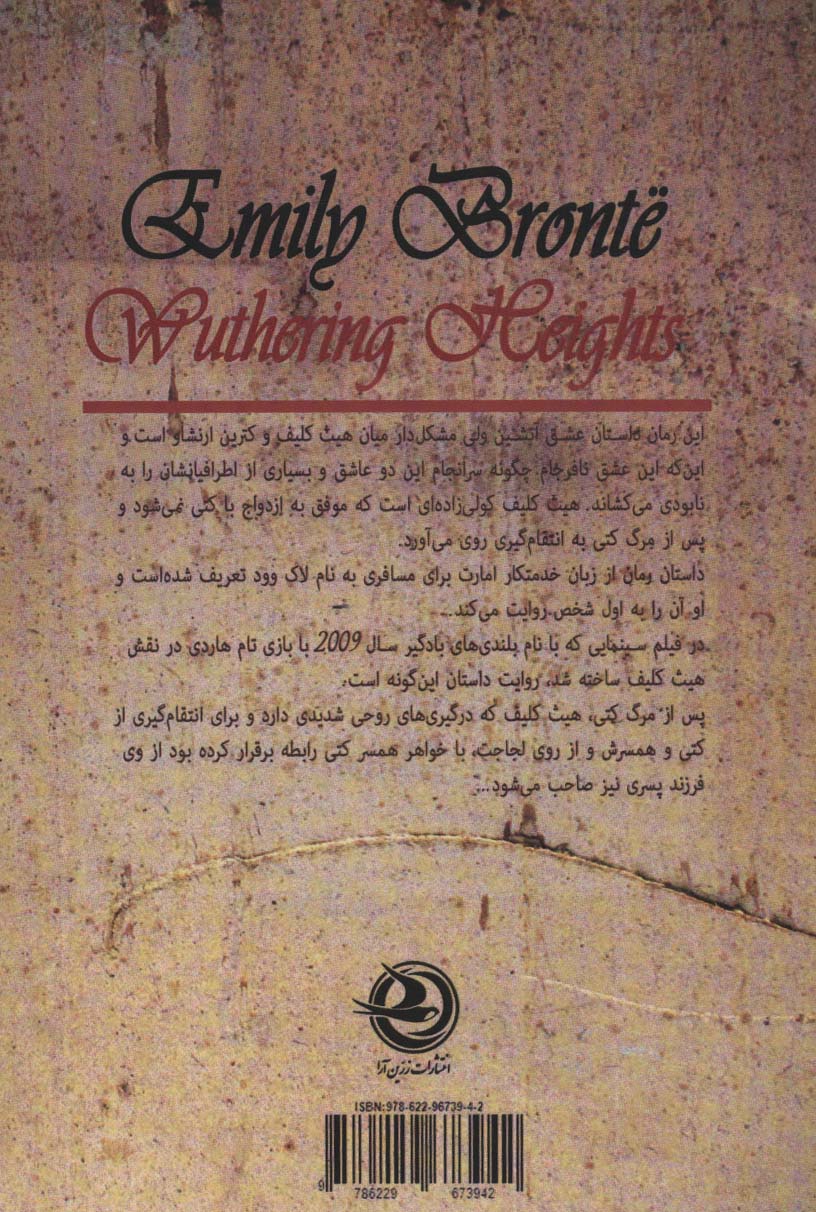 Emily Brontë
Wuthering Heights
این رمان داستان عشق آتشین ولی مشکل‌دار میان هیث کلیف و کترین ارنشاو است و
این‌که این عشق نافرجام چگونه سرانجام این دو عاشق و بسیاری از اطرافیانشان را به
نابودی می‌کشاند. هیث کلیف کولی‌زاده‌ای است که موفق به ازدواج با کتی نمی‌شود و
پس از مرگ کتی به انتقام‌گیری روی می‌آورد.
داستان رمان از زبان خدمتکار امارت برای مسافری به نام لاک وود تعریف شده‌است و
او آن را به اول شخص روایت می‌کند...
در فیلم سینمایی که با نام بلندی‌های بادگیر سال 2009 با بازی تام هاردی در نقش
هیث کلیف ساخته شد، روایت داستان این‌گونه است:
پس از مرگ کتی، هیث کلیف که درگیری‌های روحی شدیدی دارد و برای انتقام‌گیری از
کتی و همسرش و از روی لجاجت، با خواهر همسر کتی رابطه برقرار کرده بود از وی
فرزند پسری نیز صاحب می‌شود...
انتشارات زرین آرا
ISBN:978-622-96739-4-2
9 786229 673942